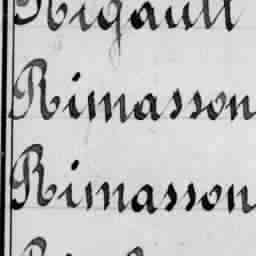 Rigault
Rimasson
Rimasson